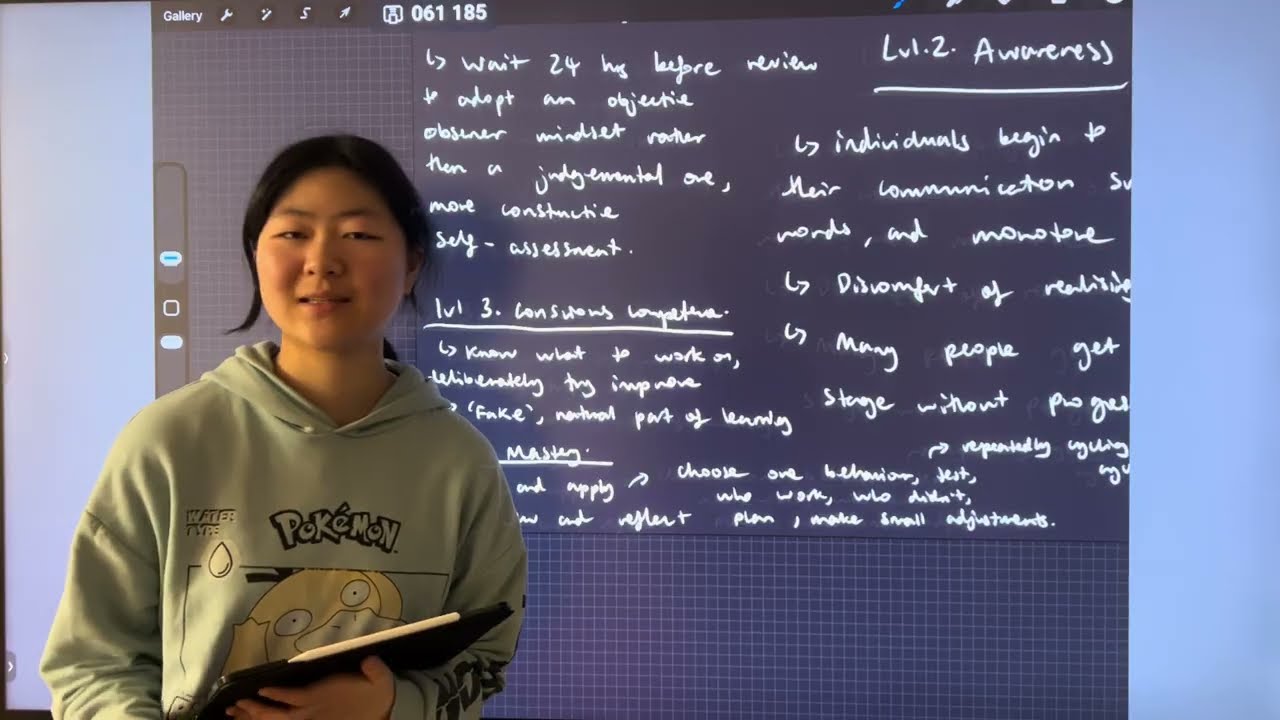 Gallery
061 185
↳ wait 24 hrs before review
to adopt an objective
observer mindset rather
then a judgemental one,
more constructive
self-assessment.
lvl 3. Conscious Competence.
↳ Know what to work on,
deliberately try improve
'Fake', natural part of learning
Mastery.
and apply → choose one behaviour, test,
who work, who didn't,
and reflect plan, make small adjustments.
Lvl.2. Awareness
↳ individuals begin to
their communication
words, and monotone
↳ Discomfort of realising
↳ Many people get
stage without progres
→ repeatedly cycling
WATER
TYPE
POKÉMON